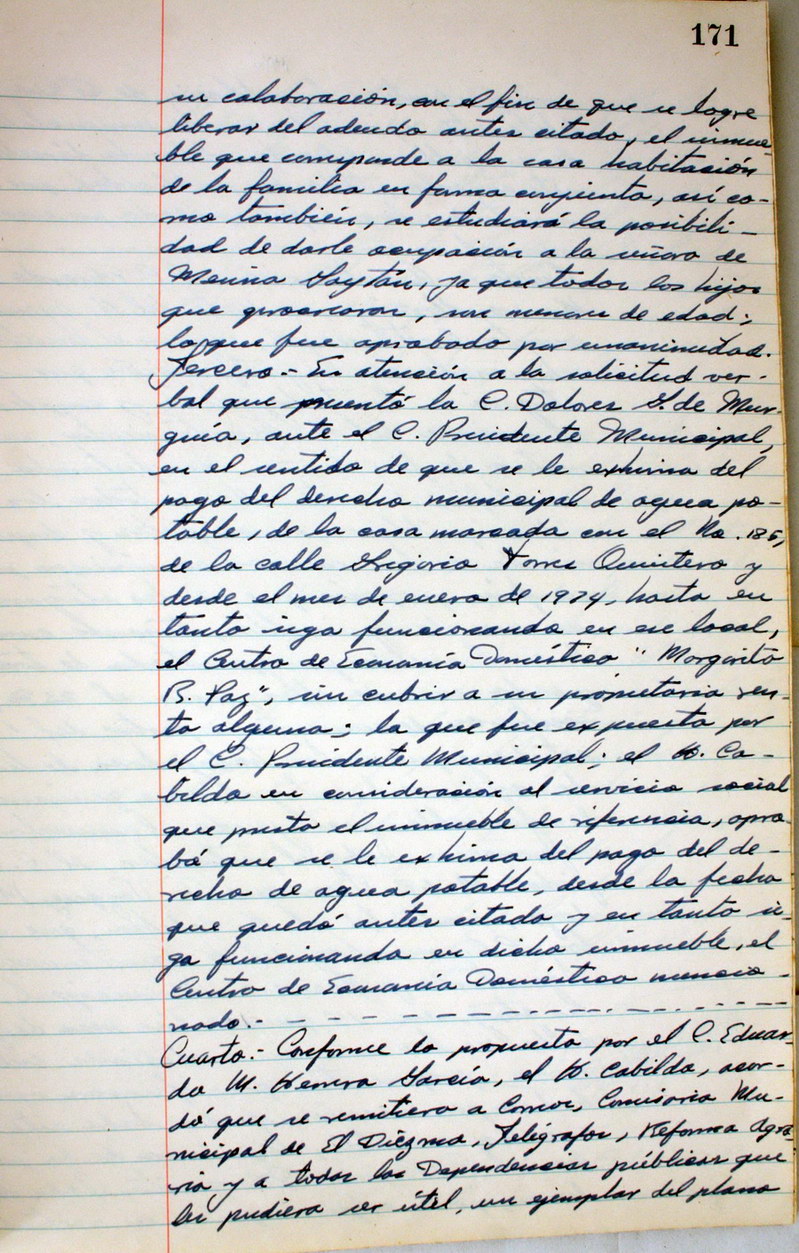 171
su colaboración, con el fin de que se logre
liberar del adeudo antes citado, el inmue
ble que corresponde a la casa habitación
de la familia en forma conjunta, así co-
mo también, se estudiará la posibili-
dad de darle ocupación a la señora de
Medina Gaytán, ya que todos los hijos
que procrearon, son menores de edad;
lo que fue aprobado por unanimidad.
Tercero.- En atención a la solicitud ver-
bal que presentó la C. Dolores G. de Mur-
guía, ante el C. Presidente Municipal,
en el sentido de que se le exhima del
pago del derecho municipal de agua po-
table, de la casa marcada con el No. 185,
de la calle Gregorio Torres Quintero y
desde el mes de enero de 1974, hasta en
tanto siga funcionando en ese local,
el Centro de Economía Doméstica "Margarito
B. Paz", sin cubrir a su propietaria ren-
ta alguna; la que fue expuesta por
el C. Presidente Municipal; el H. Ca-
bildo en consideración al servicio social
que presta el inmueble de referencia, apro-
bó que se le exhima del pago del de-
recho de agua potable, desde la fecha
que quedó antes citada y en tanto si-
ga funcionando en dicho inmueble, el
Centro de Economía Doméstica mencio-
nado.- - - - - - - - - - - - - - -
Cuarto.- Conforme lo propuesto por el C. Eduar-
do M. Herrera García, el H. Cabildo, acor-
dó que se remitiera a Correos, Comisaría Mu-
nicipal de El Diezmo, Telégrafos, Reforma Agra-
ria y a todas las Dependencias públicas que
les pudiera ser útil, un ejemplar del plano